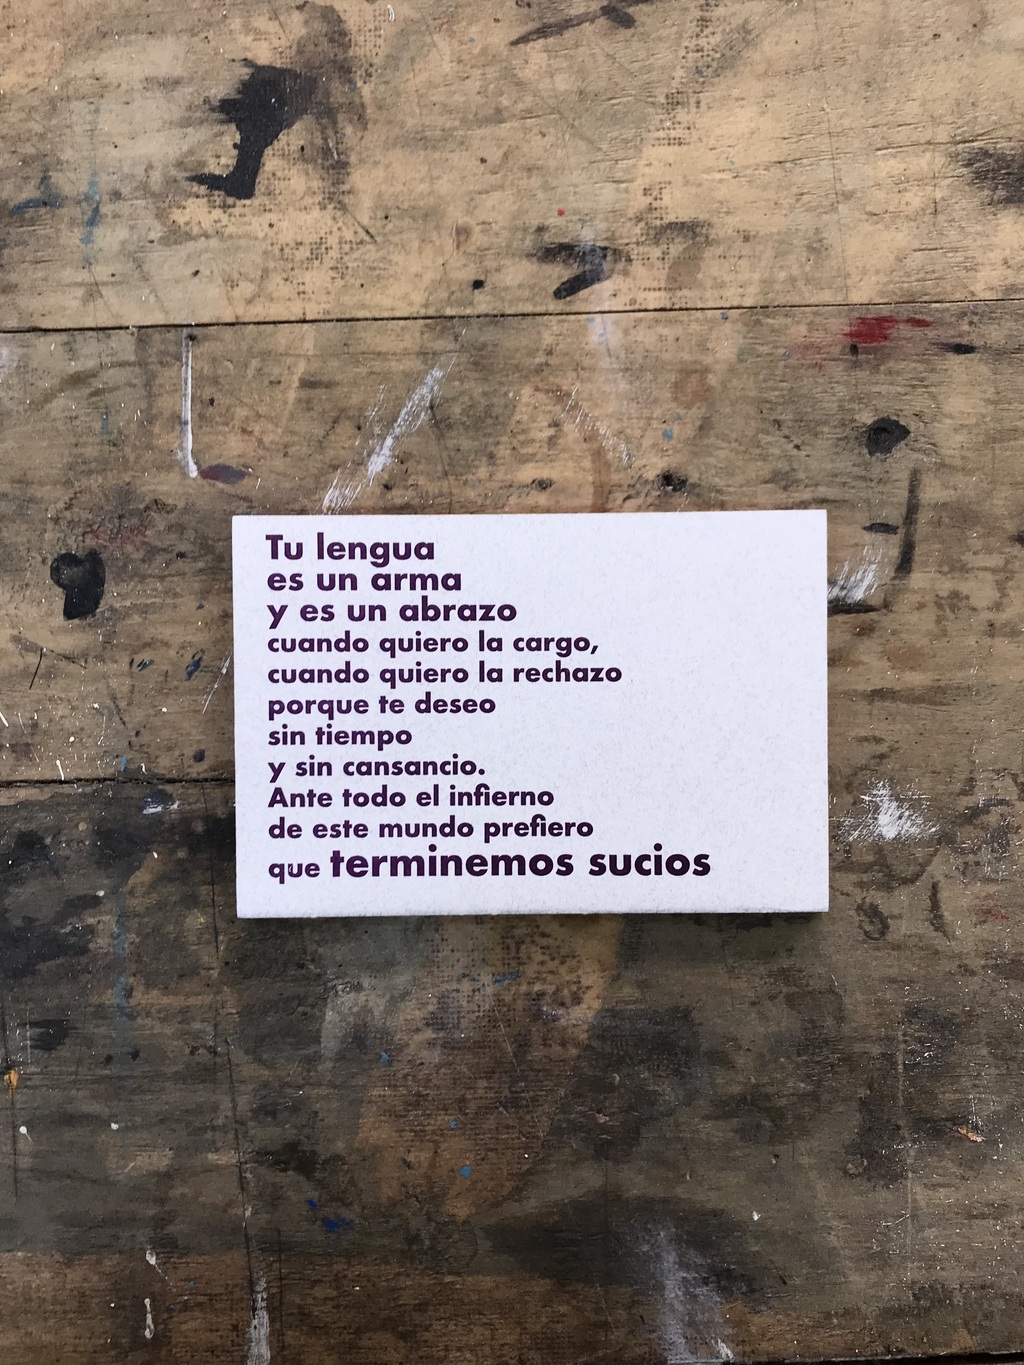 Tu lengua
es un arma
y es un abrazo
cuando quiero la cargo,
cuando quiero la rechazo
porque te deseo
sin tiempo
y sin cansancio.
Ante todo el infierno
de este mundo prefiero
que terminemos sucios